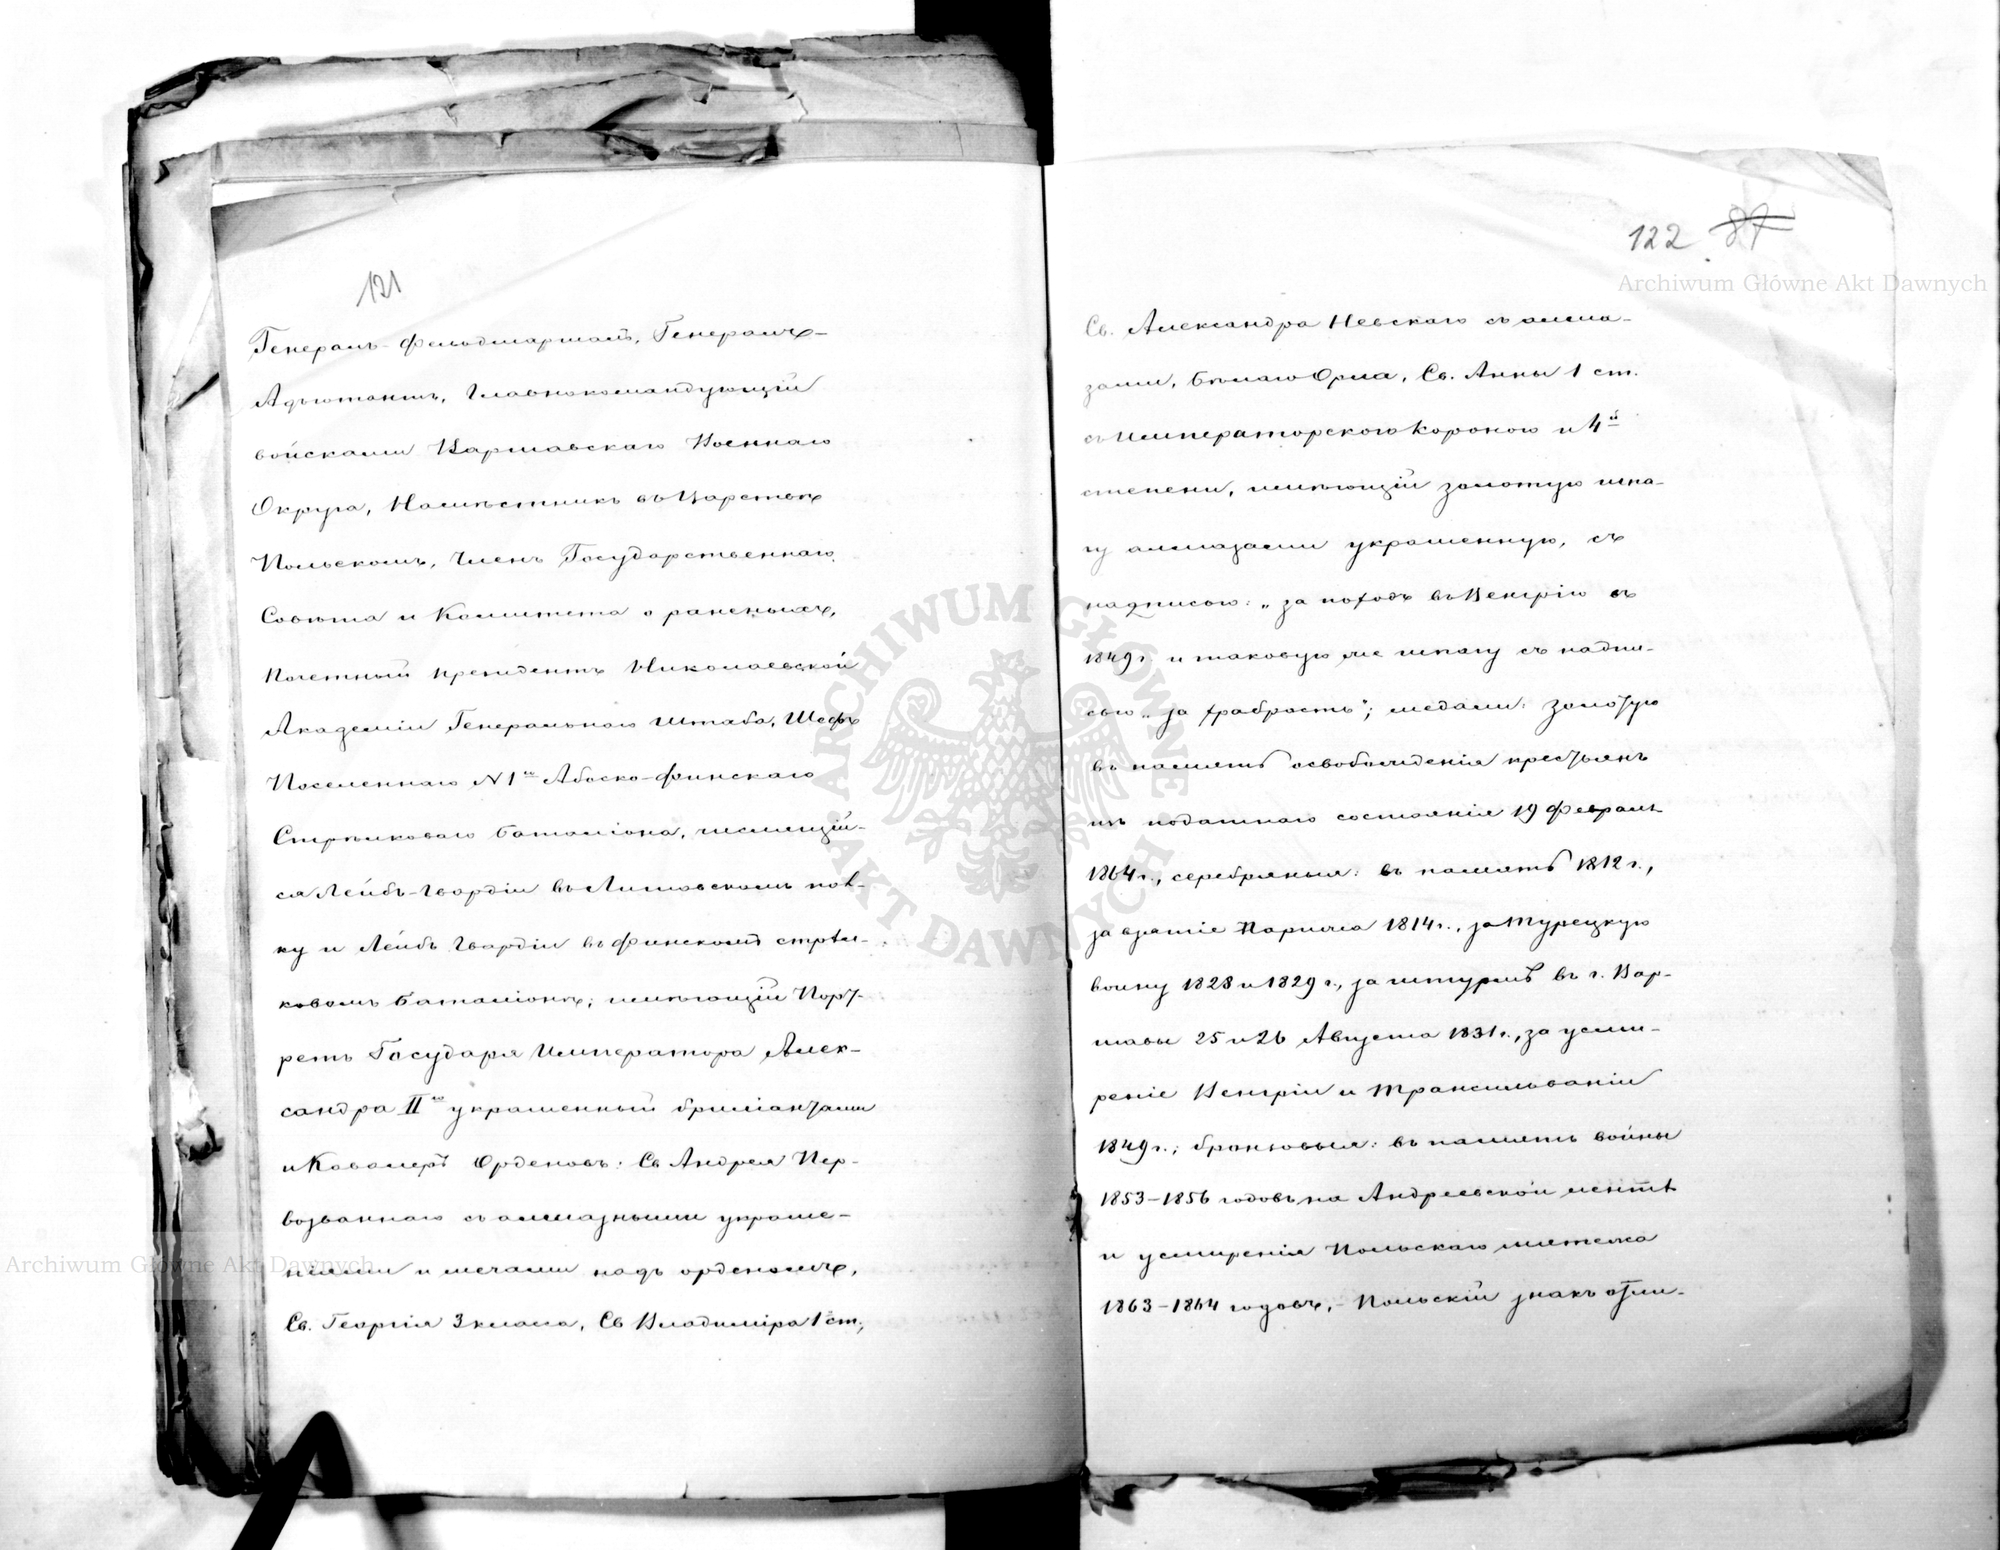 121
Генералъ-Фельдмаршалъ, Генералъ-
Адъютантъ, Главнокомандующій
войсками Варшавскаго Военнаго
Округа, Намѣстникъ въ Царствѣ
Польскомъ, Членъ Государственнаго
Совѣта и Комитета о раненыхъ,
Почетный президентъ Николаевской
Академіи Генеральнаго Штаба, Шефъ
Поселеннаго №1го Абоско-Финскаго
Стрѣлковаго баталіона, числящій-
ся Лейбъ-Гвардіи въ Литовскомъ пол-
ку и Лейбъ Гвардіи въ Финскомъ стрѣл-
ковомъ баталіонѣ; имѣющій Порт-
ретъ Государя Императора Алек-
сандра IIго украшенный брилліантами
и Кавалеръ Орденовъ: Св Андрея Пер-
возваннаго съ алмазными украше-
ніями и мечами надъ орденомъ,
Св. Георгія 3 класса, Св Владиміра 1 ст;
122 87
Св. Александра Невскаго съ алма-
зами, Бѣлаго Орла, Св. Анны 1 ст.
съ Императорскою Короною и 4й
степени, имѣющій золотую шпа-
гу алмазами украшенную, съ
надписью: „за походъ въ Венгрію въ
1849 г. и таковую же шпагу съ надпи-
сью „за храбрость“; медали: золотую
въ память освобожденія крестьянъ
изъ податнаго состоянія 19 Февраля
1864 г., серебряныя: въ память 1812 г.,
за взятіе Парижа 1814 г., за Турецкую
войну 1828 и 1829 г., за штурмъ въ г. Вар-
шавы 25 и 26 Августа 1831 г., за усми-
реніе Венгріи и Трансильваніи
1849 г.; бронзовыя: въ память войны
1853-1856 годовъ на Андреевской лентѣ
и усмиренія Польскаго мятежа
1863-1864 годовъ, - Польскій знакъ отли-
Archiwum Główne Akt Dawnych
Archiwum Główne Akt Dawnych
ARCHIWUM GŁÓWNE AKT DAWNYCH